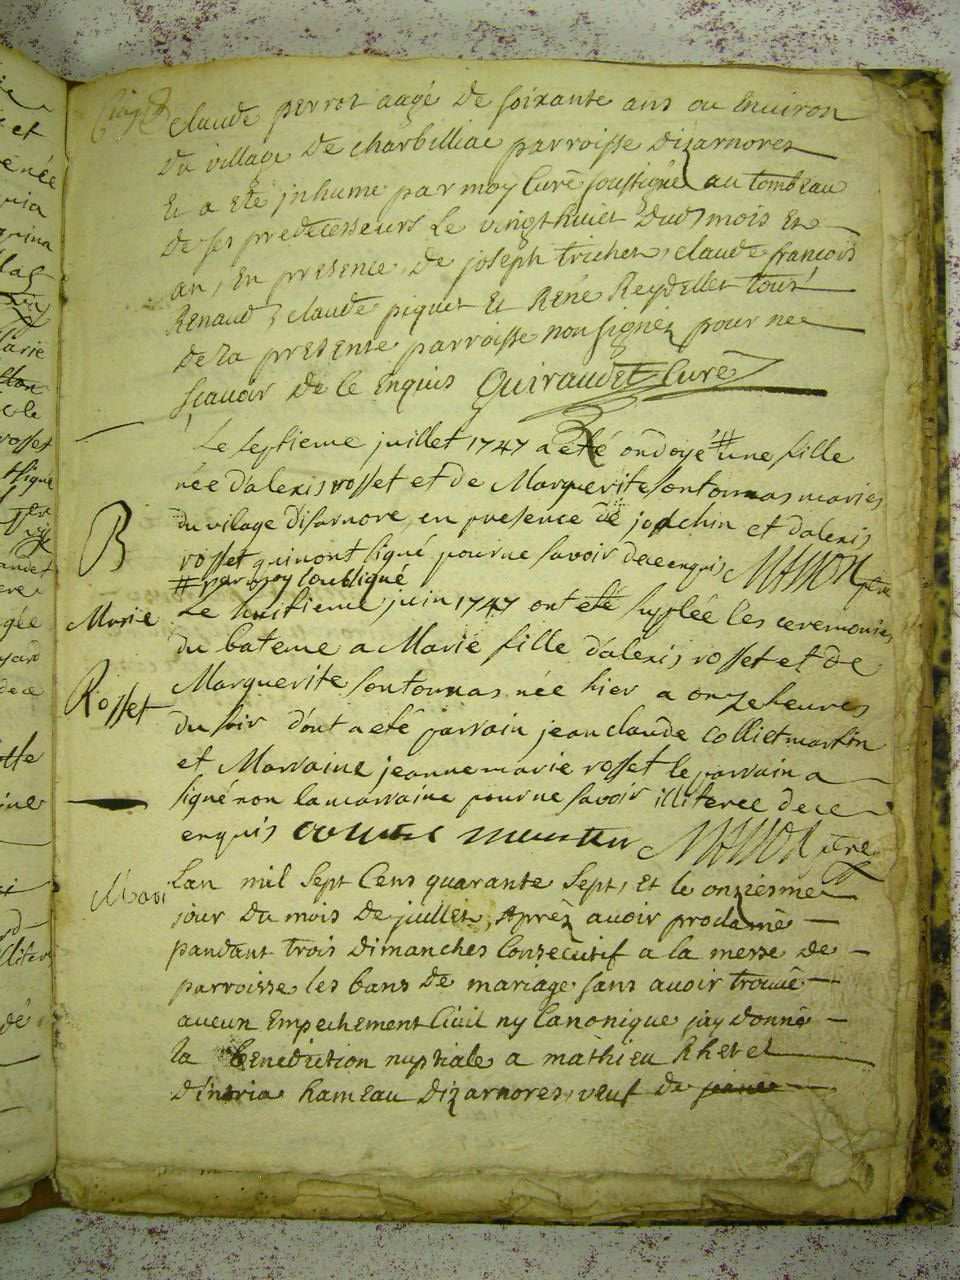 claude perrot aagé de soixante ans ou Environ
du village de charbilliac parroisse dizarnorez
Et a eté jnhumé par moy Curé soussigné au tombeau
de ses predecesseurs Le vingthuict dud mois Et
an, En presence de joseph trichet, claude francois
Renaud, claude piquet Et René Reydellet tous
de La presente parroisse non signez pour ne
scavoir de ce Enquis Guiraudet Curé
Le septieme juillet 1747 a eté ondoyé # une fille
née d'alexis rosset et de Marguerite sontonnas mariés
du vilage disarnore en presence de joachin et d'alexis
rosset qui n'ont signé pour ne savoir de ce enquis
# par moy soubsigné
B
Marie
Rosset
Le huitieme juin 1747 ont eté suplée les ceremonies
du bateme a Marie fille d'alexis rosset et de
Marguerite sontonnas née hier a onze heures
du soir dont a eté parrain jean claude Colliet martin
et Marraine jeanne marie rosset le parrain a
signé non la marraine pour ne savoir illiteree de ce
enquis
Lan mil sept Cens quarante sept, Et le onziesme
jour du mois de juillet, Aprèz avoir proclamé
pandant trois dimanches Consecutif a la messe de
parroisse les bans de mariage sans avoir trouvé
aucun Empechement Civil ny Canonique jay donné
la Benediction nuptiale a mathieu Rhetel
d'intria hameau dizarnores, veuf de jeanne